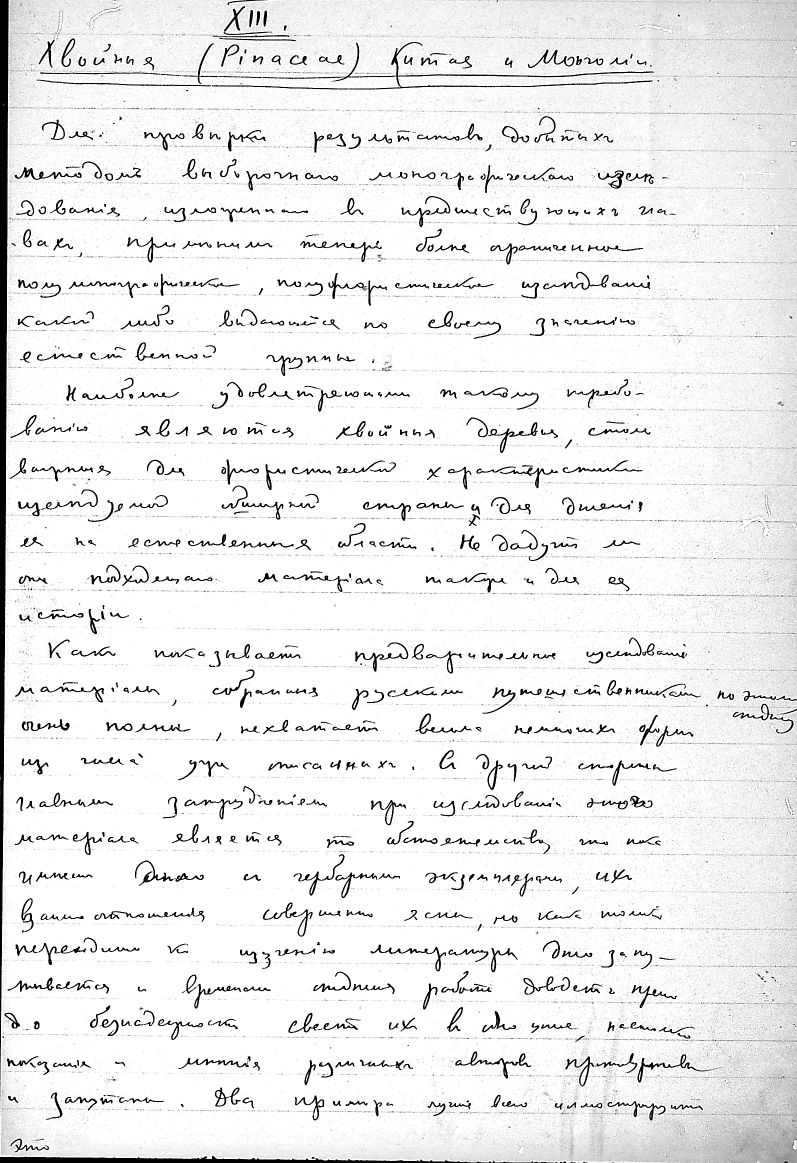 XIII.
Хвойныя (Pinaceae) Китая и Монголіи.
Для провѣрки результатовъ, добытыхъ
методомъ выборочнаго монографическаго изслѣ-
дованія, изложеннаго въ предшествующихъ гла-
вахъ, примѣнимъ теперь болѣе ограниченное
полумонографическое, полуфлористическое изслѣдованіе
какой либо выдающейся по своему значенію
естественной группы.
Наиболѣе удовлетворяющими такому требо-
ванію являются хвойныя деревья, столь
важныя для флористической характеристики
изслѣдуемой обширной страны и для дѣленія
ея на естественныя области. Не дадутъ ли
они подходящаго матеріала также и для ея
исторіи.
Какъ показываетъ предварительное изслѣдованіе
матеріалы, собранные русскими путешественниками по этому
отдѣлу
очень полны, нехватаетъ весьма немногихъ формъ
изъ числа уже описанныхъ. Съ другой стороны
главнымъ затрудненіемъ при изслѣдованіи этого
матеріала является то обстоятельство, что пока
имѣемъ дѣло съ гербарными экземплярами, ихъ
взаимоотношенія совершенно ясны, но какъ только
переходимъ къ изученію литературы дѣло запу-
тывается и временами работы до
безнадежности свести ихъ въ одно цѣлое, настолько
показанія и мнѣнія различныхъ авторовъ противорѣчивы
и запутаны. Два примѣра лучше всего иллюстрируютъ
это